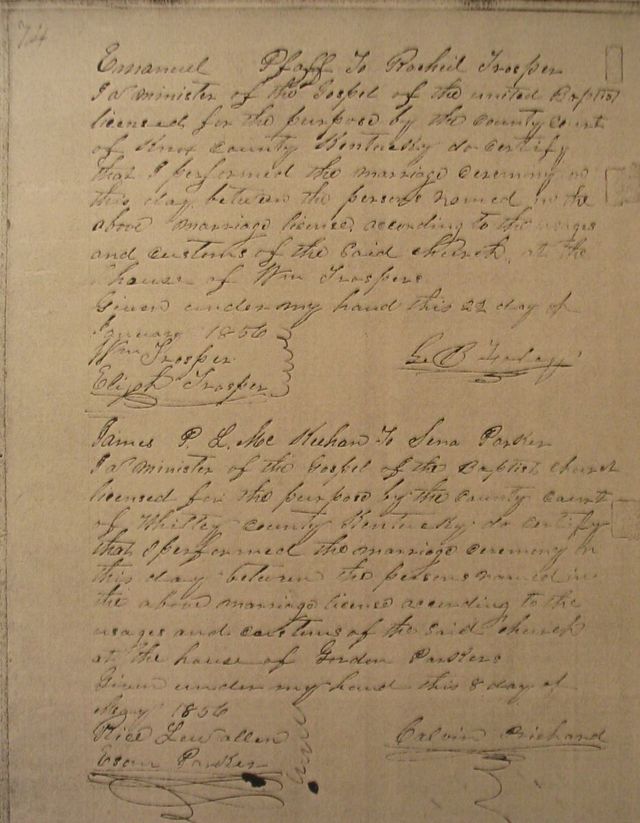 74
Emanuel Pfaff To Racheil Trosper
I a minister of the Gospel of the united Baptist
licensed for the purpose by the County Court
of Knox County Kentucky do certify
that I performed the marriage ceremony on
this day between the persons named in the
above marriage license according to the usages
and customs of the said church, at the
house of Wm Trospers
Given under my hand this 22 day of
January 1856
Wm Trosper
Elijah Trosper
James P. L. Mc Keehan To Sena Parker
I a minister of the Gospel of the Baptist church
licensed for the purpose by the County Court
of Whitley County Kentucky do certify
that I performed the marriage ceremony on
this day between the persons named in
the above marriage license according to the
usages and customs of the said church
at the house of Gordon Parkers
Given under my hand this 8 day of
May 1856
Rice Lewallen
Calvin Prichard
Esau Parker